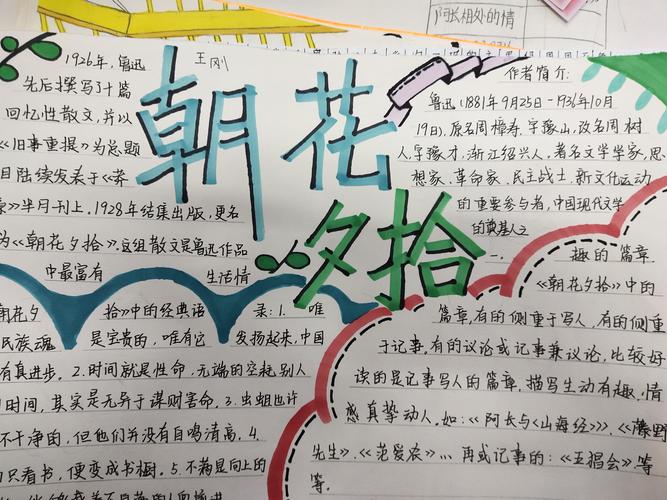 阿长相处的情
朝花夕拾
王刚
1926年,鲁迅
先后撰写了十篇
回忆性散文,并以
《旧事重提》为总题
目陆续发表于《莽
》半月刊上,1928年结集出版,更名
为《朝花夕拾》,这组散文是鲁迅作品
中最富有 生活情
作者简介:
鲁迅(1881年9月25日-1936年10月
19日),原名周樟寿,字豫山,改名周树
人,字豫才,浙江绍兴人,著名文学学家,思
想家、革命家、民主战士,新文化运动
的重要参与者,中国现代文学
的奠基人之
一、 趣的篇章
《朝花夕拾》中的
篇章,有的侧重于写人,有的侧重
于记事,有的议论或记事兼议论,比较好
读的是记事写人的篇章,描写生动有趣,情
感真挚动人,如:《阿长与山海经》、《藤野
先生》、《范爱农》…再或记事的:《五猖会》等
等.
朝花夕 拾》中的经典语 录:1. 唯
民族魂 是宝贵的,唯有它 发扬起来,中国
有真进步. 2.时间就是性命,无端的空耗别人
时间,其实是无异于谋财害命. 3.虫蛆也许
不干净的,但他们并没有自鸣清高. 4.
只看书,便变成书橱. 5.不满是向上的